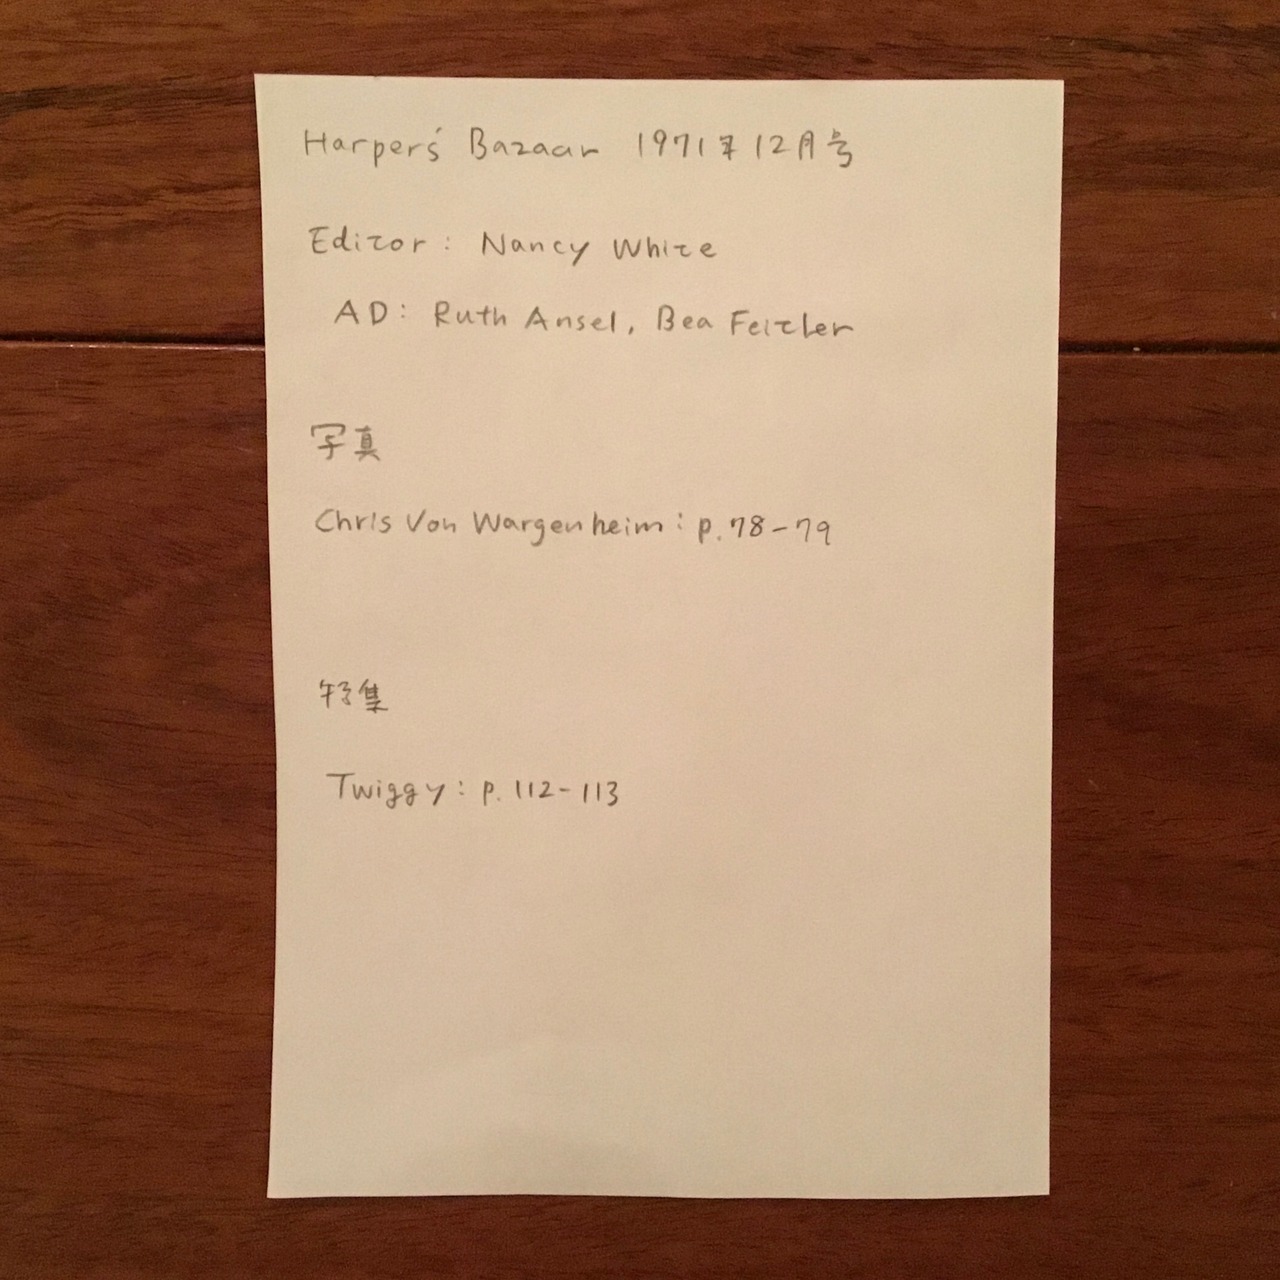 Harper's Bazaar 1971年12月号
Editor: Nancy White
AD: Ruth Ansel, Bea Feitler
写真
Chris Von Wargenheim: p.78-79
特集
Twiggy: p.112-113